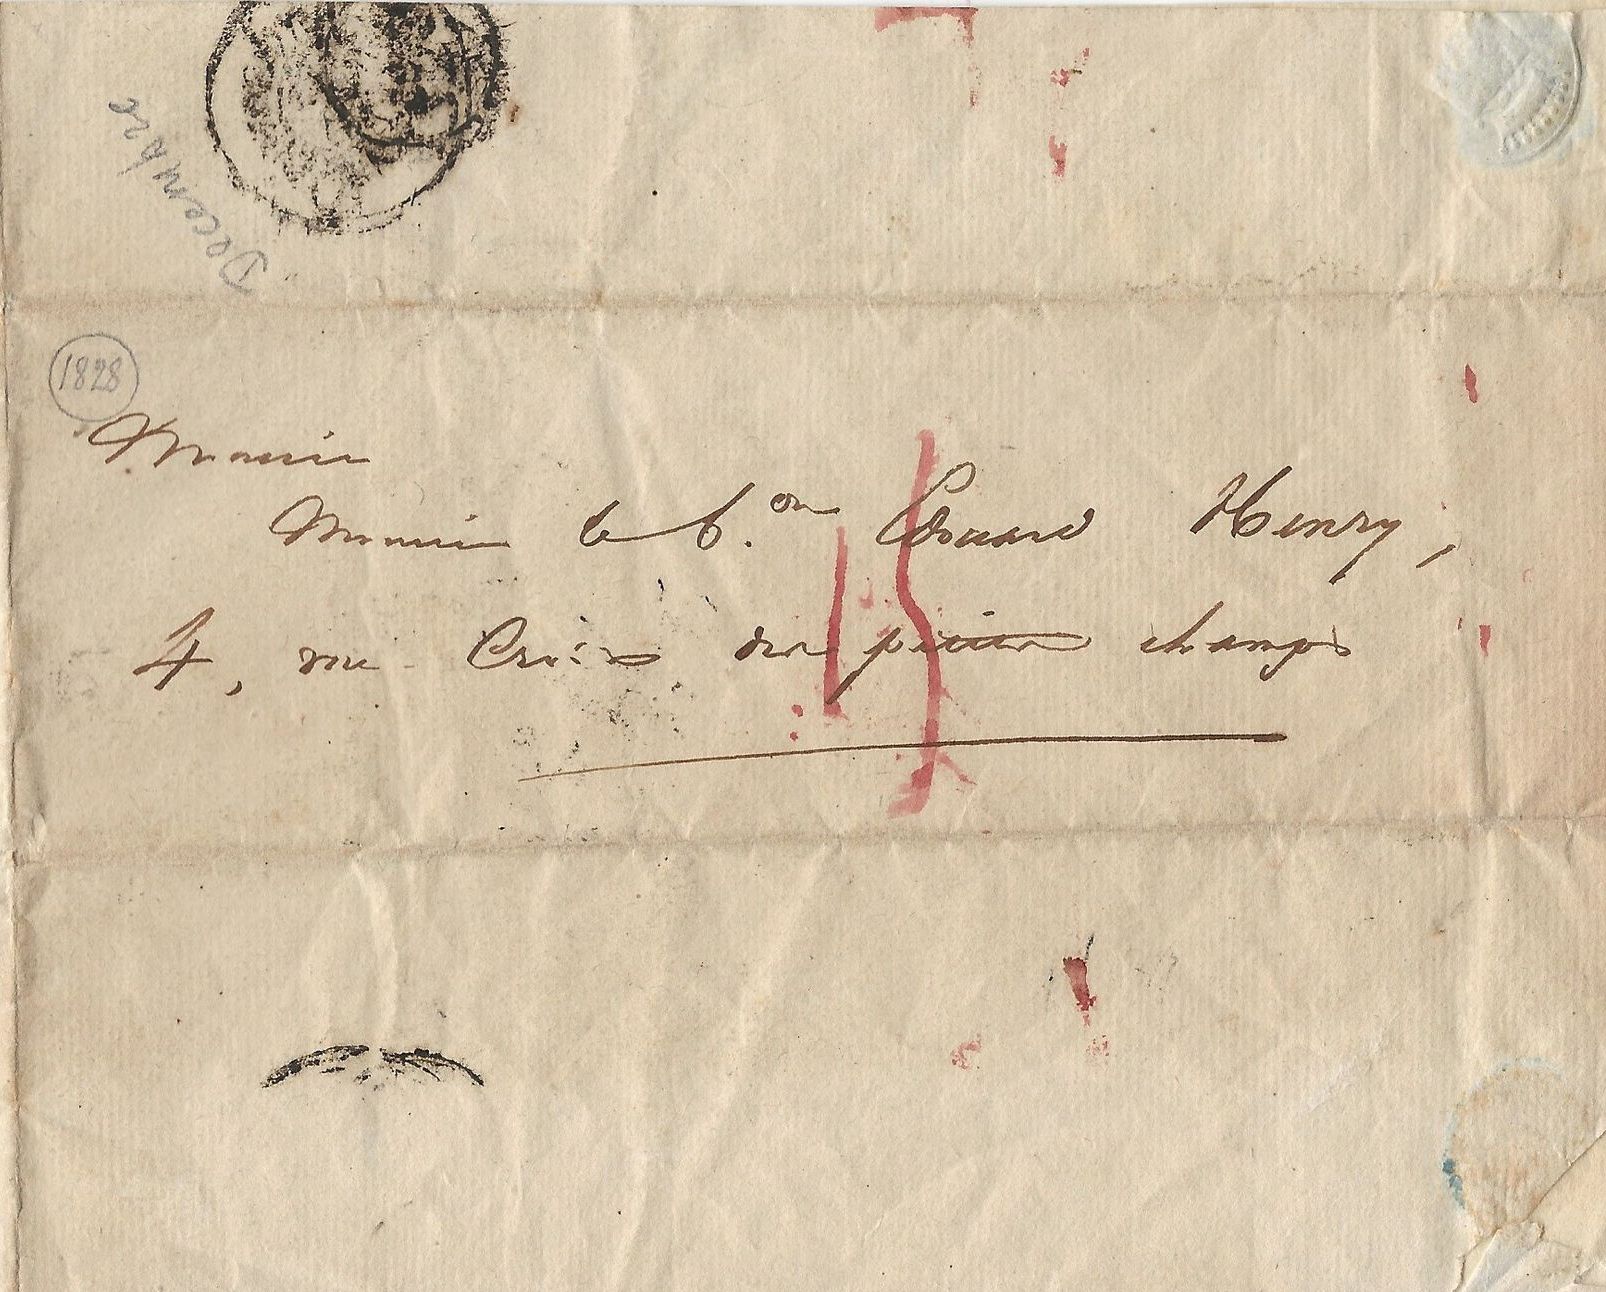 Decembre
1828
Monsieur
Monsieur le b.on Edouard Henry,
4, rue Croix des petits champs
15